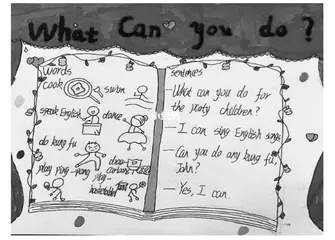 What Can you do?
words
cook
swim
speak English
dance
do kung fu
draw
cartoons
play ping-pong
play
basketball
sentences
—What can you do for
the party children?
—I can sing English songs
—Can you do any kung fu,
John?
—Yes, I can.